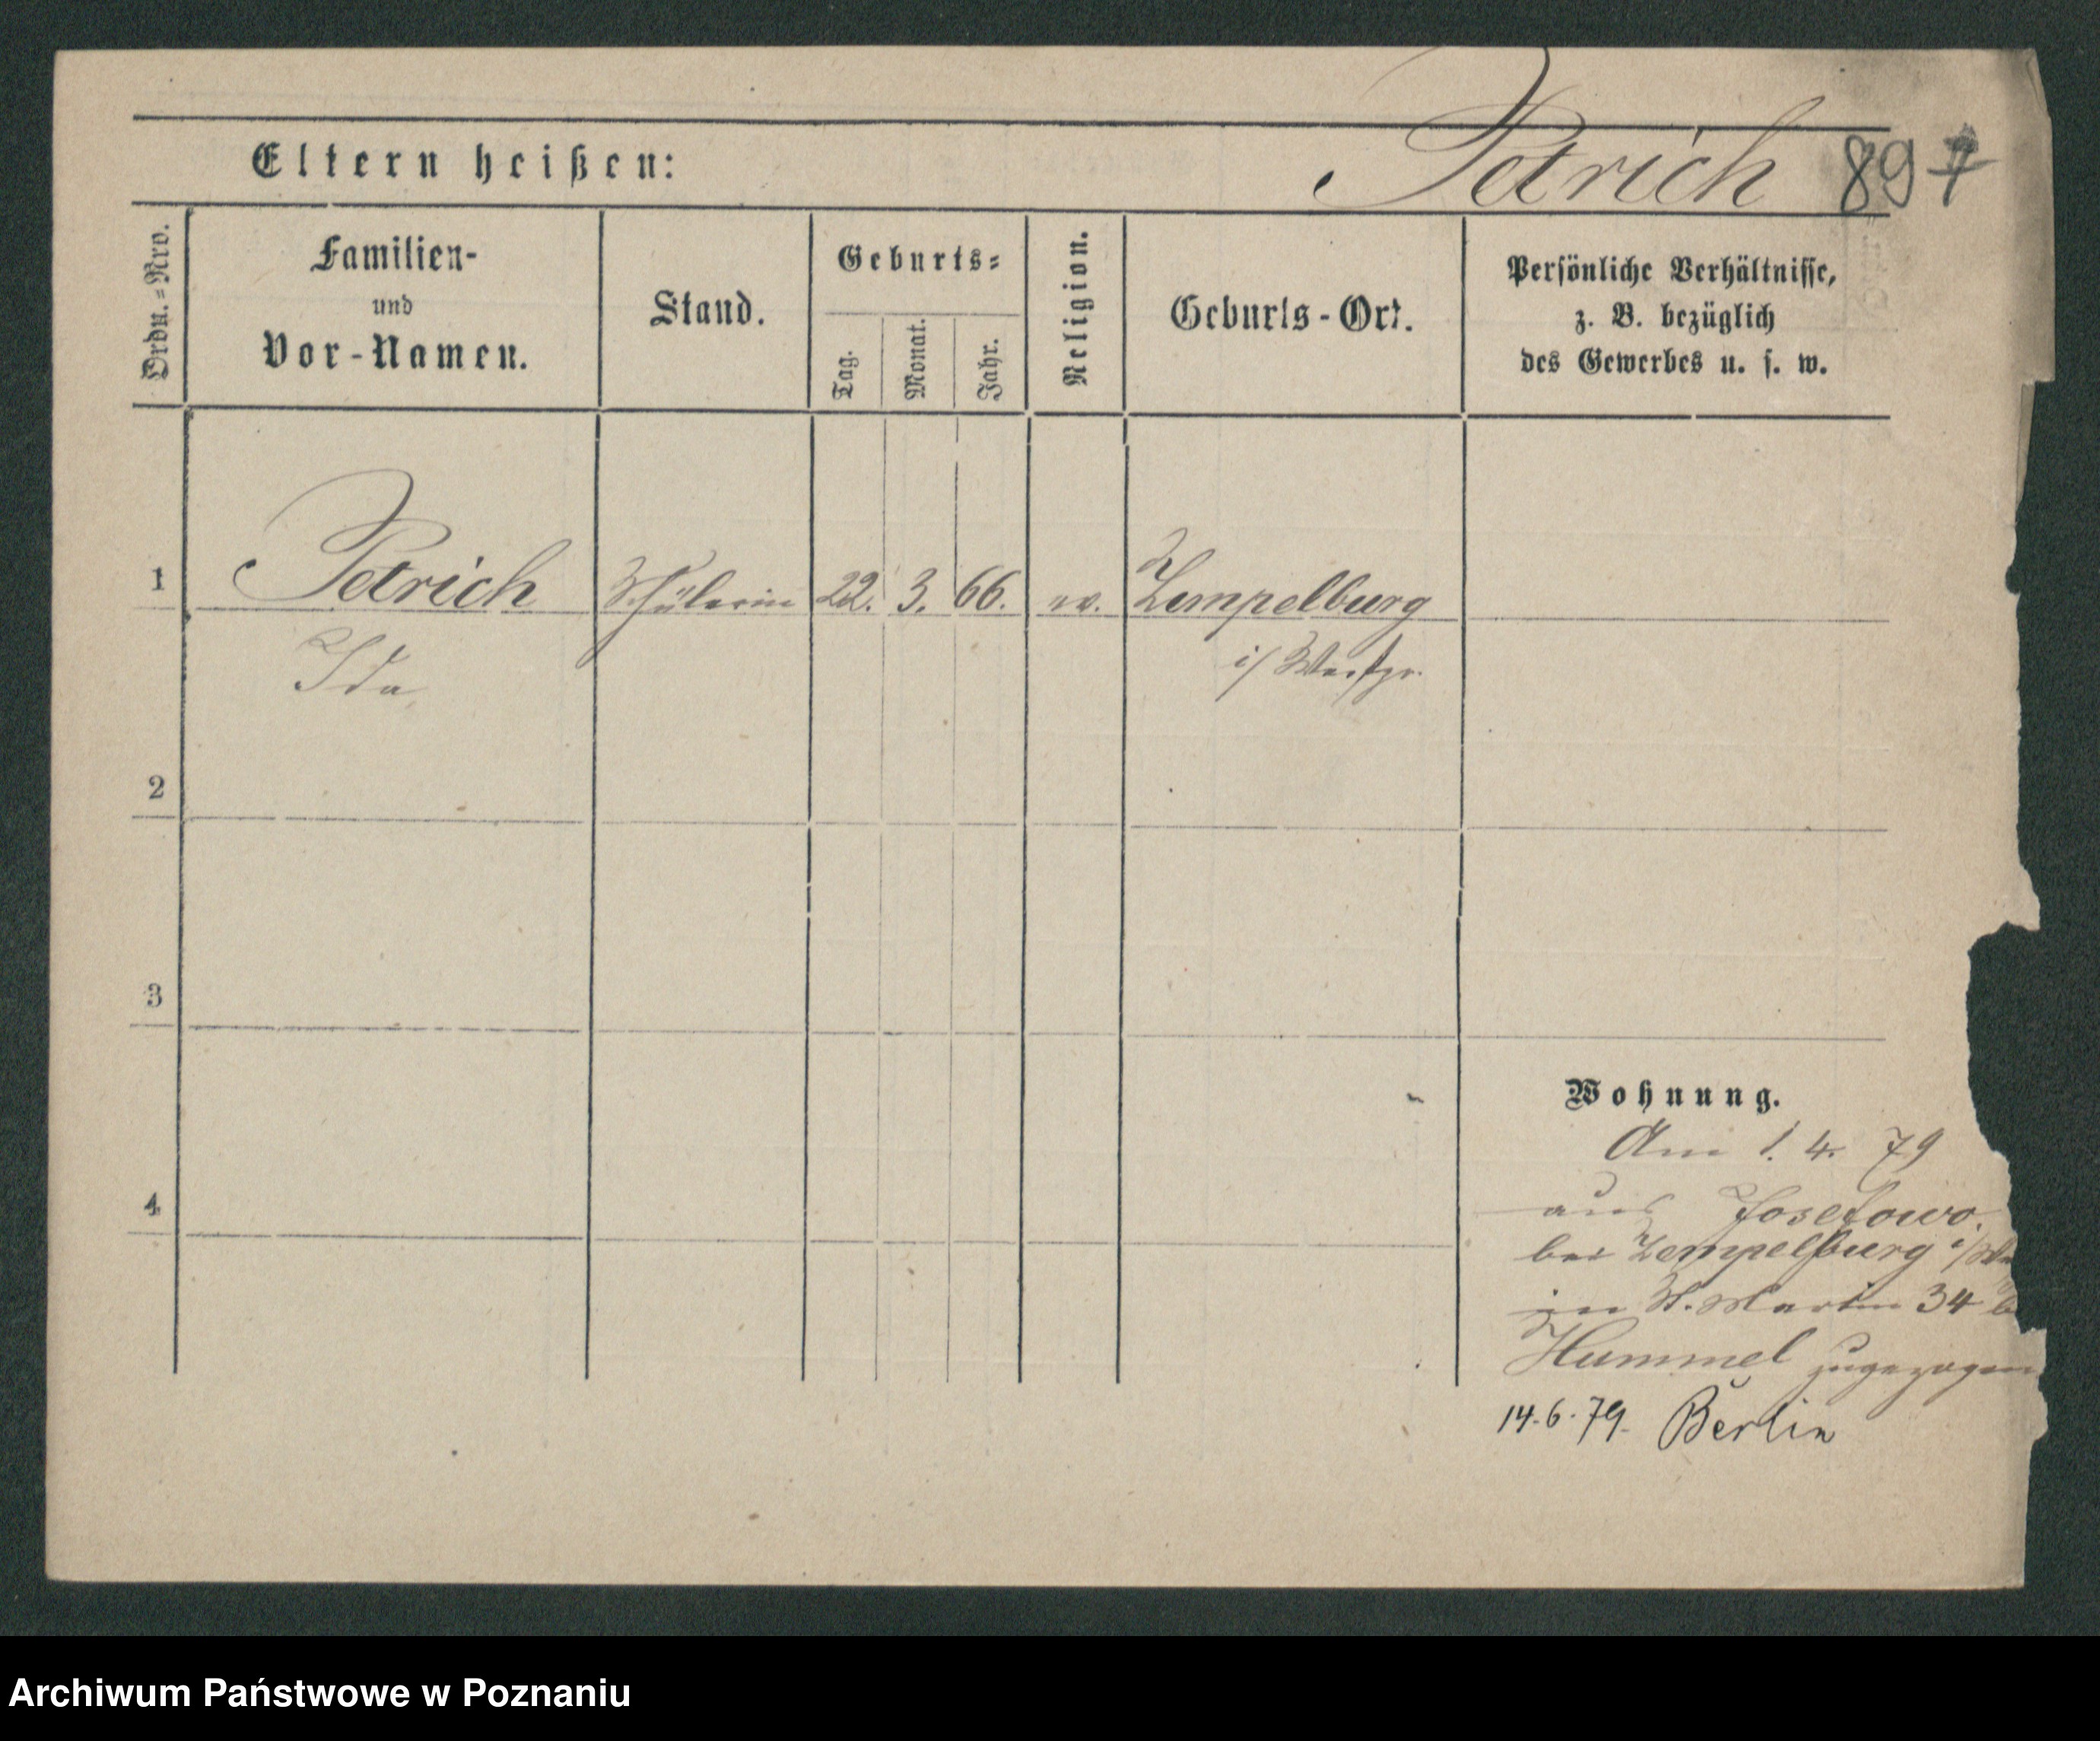 Petrich 897
Eltern heißen:
Ordn.=Nro.
Familien-
und
Vor-Namen.
Stand.
Geburts=
Tag.
Monat.
Jahr.
Religion.
Geburts-Ort.
Persönliche Verhältnisse,
z. B. bezüglich
des Gewerbes u. s. w.
1 Petrich Schülerin 22. 3. 66. ev. Zempelburg
Ida i/ Westpr.
2
3
4
Wohnung.
Am 1. 4. 79
aus Josefowo.
bei Zempelburg i/We
in St. Martin 34 b
Hummel zugezogen
14.6.79. Berlin
Archiwum Państwowe w Poznaniu